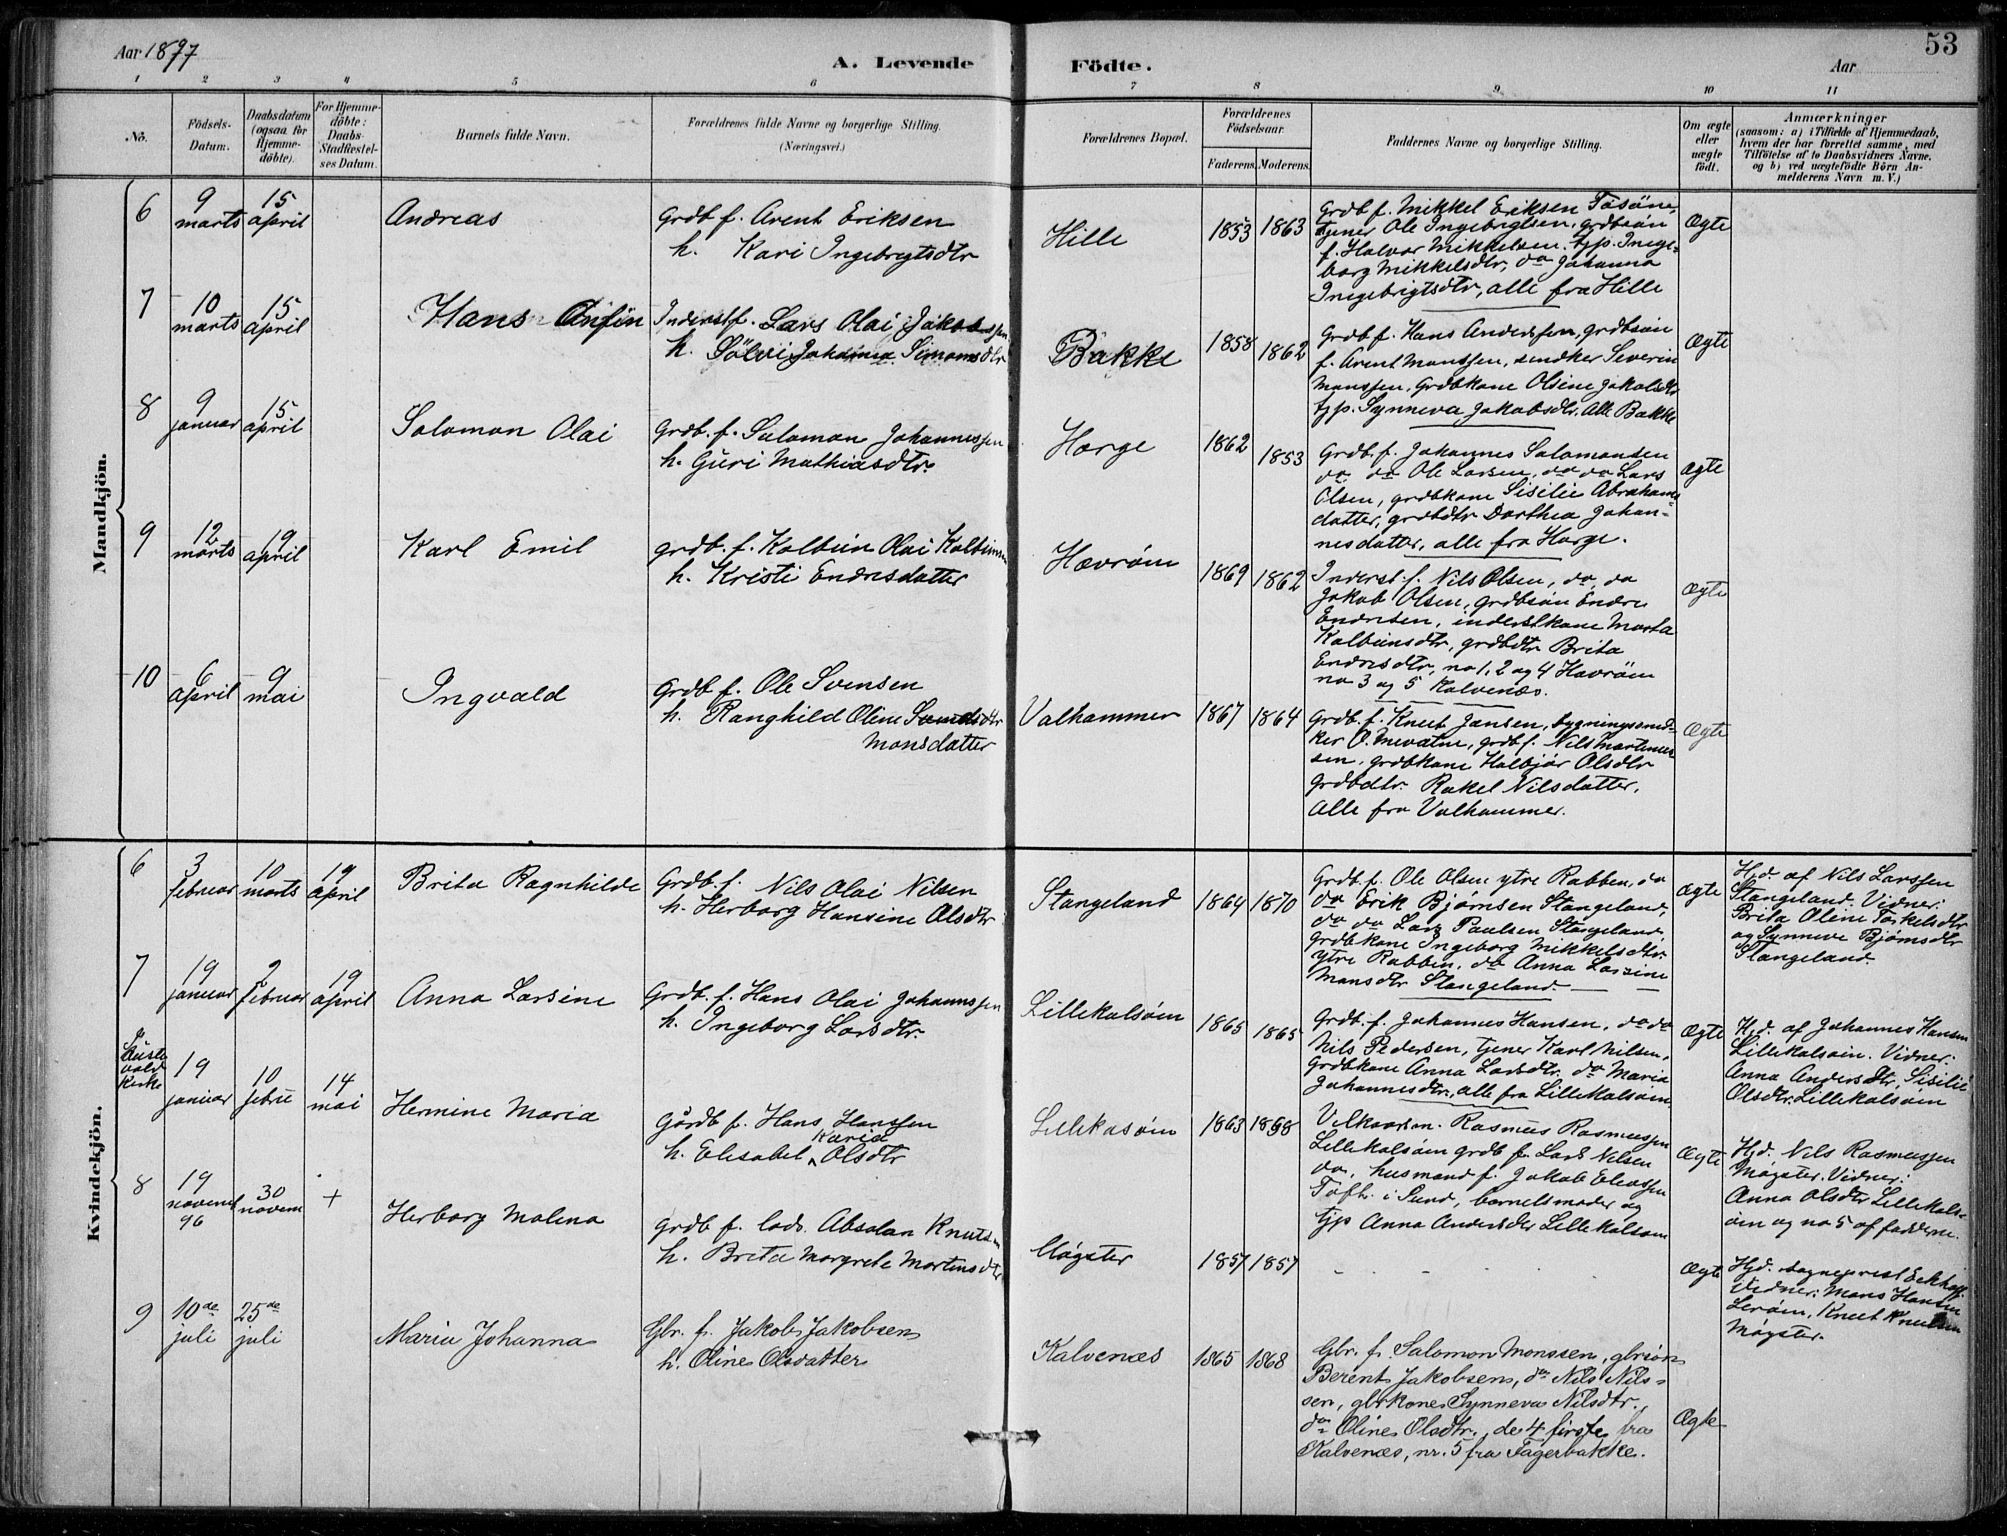 Aar 1897
A. Levende Födte.
Aar
53
1 2 3 4 5 6 7 8 9 10 11
Nô.
Födsels-
Datum.
Daabsdatum
(ogsaa for
Hjemme-
döbte).
For Hjemme-
döbte:
Daabs-
Stadfæstel-
ses Datum.
Barnets fulde Navn.
Forældrenes fulde Navne og borgerlige Stilling.
(Næringsvei.)
Forældrenes Bopæl.
Forældrenes
Födselsaar.
Faderens. Moderens.
Faddernes Navne og borgerlige Stilling.
Om ægte
eller
uægte
födt.
Anmærkninger
(saasom: a) i Tilfælde af Hjemmedaab,
hvem der har forrettet samme, med
Tilföielse af to Daabsvidners Navne,
og b) ved uægtefödte Börn An-
melderens Navn m. V.)
Mandkjön.
6
9
marts
15
april
Andreas
Grdb f. Arent Eriksen
h. Kari Ingebrigtsdtr
Hille
1853 1863
Grdb f. Mikkel Eriksen
tjener Ole Ingebrigtsen, grdbsøn
f. Halvor Mikkelsen. tjp. Inge-
borg Mikkelsdtr, do Johanna
Ingebrigtsdtr, alle fra Hille
Ægte
7
10
marts
15
april
Hans Anfin
Inderst f. Lars Olai Jakobssen
h. Sölvi Johanna Simonsdtr
Bakke
1858 1862
Grdb f. Hans Anderssen, grdbsøn
f. Arent Monssen, snedker Severin
Monssen, Grdbkone Olsine Jakobsdtr
tjp. Synneva Jakobsdtr. Alle Bakke
Ægte
8
9
januar
15
april
Salomon Olai
Grdb. f. Salomon Johannessen
h. Guri Mathiasdtr.
Horge
1862 1853
Grdb. f. Johannes Salomonsen
do do Ole Larsen, do do Lars
Olsen, grdbkone Sisilie Abrahams
datter, grdbdtr Dorthea Johan-
nesdatter, alle fra Horge.
Ægte
9
12
marts
19
april
Karl Emil
grdb. f. Kolbein Olai Kolbeinsen
h. Kristi Endresdatter
Hevrøen
1869 1862
Inderst f. Nils Olsen, do do
Jakob Olsen, grdbsøn Endre
Endresen, inderstkone Marta
Kolbeinsdtr, grdbdtr Brita
Endresdtr, no 1, 2 og 4 Hevrøen
no 3 og 5 Kalvenæs.
Ægte
10
6
april
9
mai
Ingvald
Grdb f. Ole Svensen
h. Ranghild Oline
Monsdatter
Valhammer
1867 1864
Grdb. f. Knut Jansen, bygningssned-
ker O. Mevatne, grdb f. Nils Martinus-
sen, grdbkone Halbjør Olsdtr
grdbdtr. Rakel Nilsdatter,
alle fra Valhammer.
Ægte
Kvindekjön.
6
3
februar
10
marts
19
april
Brita Ragnhilde
Grdb. f. Nils Olai Nilsen
h. Herborg Hansine Olsdtr
Stangeland
1864 1870
Grdb. f. Ole Olsen ytre Rabben, do
do Erik Bjørnsen Stangeland,
do do Lars Paulsen Stangeland
Grdbkone Ingeborg Mikkelsdtr
ytre Rabben, do Anna Larsine
Mansdtr Stangeland
Ægte
Hjd. af Nils Larssen
Stangeland. Vidner:
Brita Oline Torkelsdtr
og Synneve Bjørnsdtr
Stangeland
7
19
januar
2
februar
19
april
Anna Larsine
Grdb. f. Hans Olai Johannssen
h. Ingeborg Larsdtr.
Lillekalsøen
1865 1865
Grdb. f. Johannes Hansen, do do
Nils Pedersen, tjener Karl Nilsen,
Grdbkone Anna Larsdtr. do Maria
Johannesdtr, alle fra Lillekalsøen
Ægte
Hjd. af Johannes Hansen
Lillekalsøen. Vidner:
Anna Andersdtr, Sisilie
Olsdtr. Lillekalsøen
kirke
19
januar
10
febru
14
mai
Hermine Maria
Gårdb f. Hans Hanssen
h. Elisabet Karia Olsdtr
Lillekasøen
1863 1868
Vilkaarsm. Rasmus Rasmussen
Lillekalsøen grdb f. Lars Nilsen
do, husmand f. Jakob Eliassen
Toft i Sund, barnets moder og
tjp Anna Andersdtr Lillekalsøen
Ægte
Hjd. Nils Rasmussen
Møgster. Vidner:
Anna Olsdtr Lillekals-
øen og no 5 af fadderne.
8
19
novemb
96
30
novem
+
Herborg Malena
Grdb f. lods. Absalon Knutsen
h. Brita Margrete Martinsdtr
Møgster
1857 1857
Ægte
Hjd. sogneprest Eckhoff.
Vidner: Mons Hansen
Lerøen, Knut Knutsen
Møgster.
9
10de
juli
25de
juli
Maria Johanna
Gbr. f. Jakob Jakobsen
h. Oline Olsdatter
Kalvenæs
1865 1868
Gbr. f. Salomon Monssen, gbrsøn
Berent Jakobsen, do Nils Nils-
sen, gbrkone Synneva Nilsdtr.,
do Oline Olsdtr., de 4 første fra
Kalvenæs, nr. 5 fra Fagerbakke.
Ægte